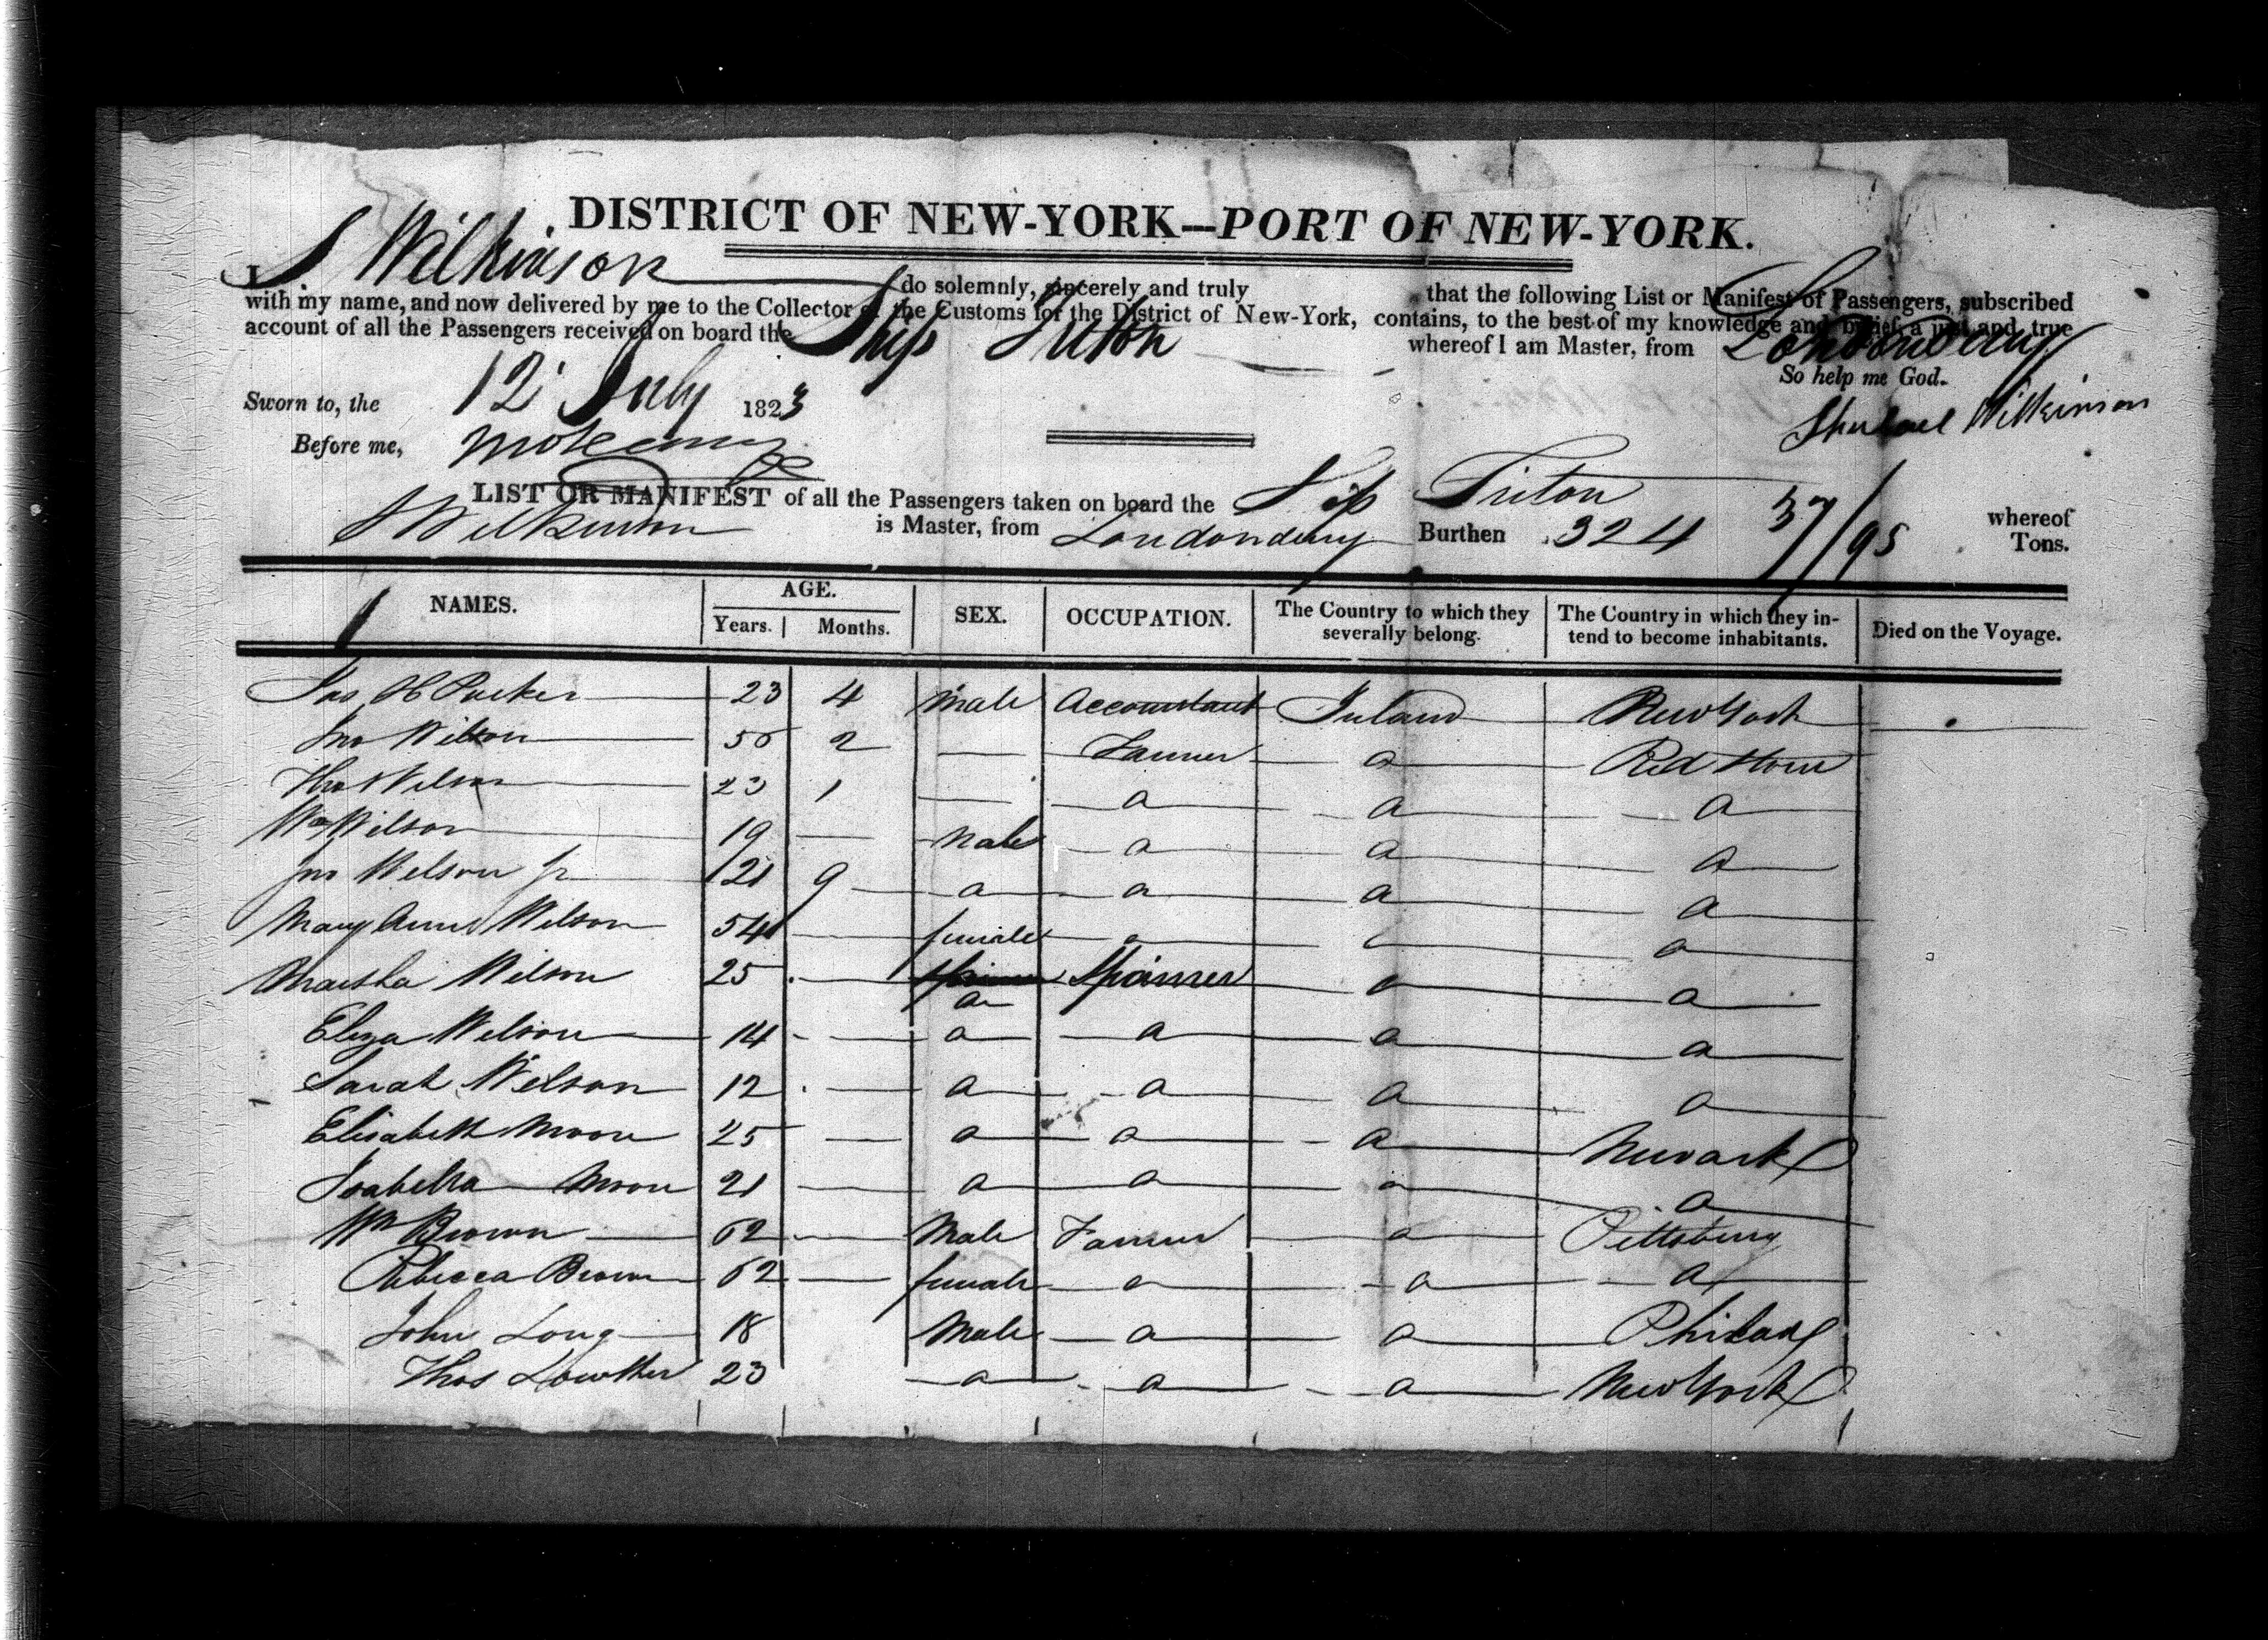 DISTRICT OF NEW-YORK---PORT OF NEW-YORK.
I S Wilkinson do solemnly, sincerely and truly that the following List or Manifest of Passengers, subscribed
with my name, and now delivered by me to the Collector of the Customs for the District of New-York, contains, to the best of my knowledge and belief, a just and true
account of all the Passengers received on board the Ship Triton whereof I am Master, from Londonderry
So help me God.
Sworn to, the 12 July 1823
Wilkinson
Before me,
LIST OR MANIFEST of all the Passengers taken on board the Ship Triton whereof
S Wilkinson is Master, from Londonderry Burthen 324 37/95 Tons.
NAMES. AGE. Years. Months. SEX. OCCUPATION. The Country to which they severally belong. The Country in which they intend to become inhabitants. Died on the Voyage.
Jas H Parker 23 4 Male Accountant Ireland New York
Jno Wilson 50 2 — Farmer a Red Hook
Thos Wilson 23 1 — a a a
Wm Wilson 19 — Male a a a
Jno Wilson Jr 21 9 a a a a
Mary Anne Wilson 54 — female a a a
Martha Wilson 25 — a Spinner a a
Eliza Wilson 14 — a a a a
Sarah Wilson 12 — a a a a
Elisabeth Moore 25 — a a a Newark
Isabella Moore 21 — a a a a
Wm Brown 62 — Male Farmer a Pittsburg
Rebecca Brown 62 — female a a a
John Long 18 Male a a Philad
Thos Lowther 23 a a a New York